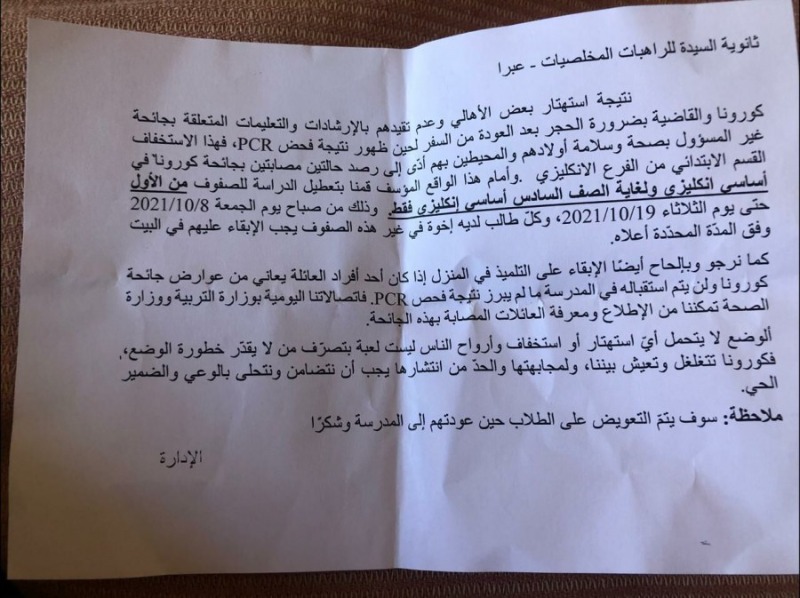 ثانوية السيدة للراهبات المخلصيات - عبرا
نتيجة استهتار بعض الأهالي وعدم تقيدهم بالإرشادات والتعليمات المتعلقة بجائحة
كورونا والقاضية بضرورة الحجر بعد العودة من السفر لحين ظهور نتيجة فحض PCR، فهذا الاستخفاف
غير المسؤول بصحة وسلامة أولادهم والمحيطين بهم أدى إلى رصد حالتين مصابتين بجائحة كورونا في
القسم الابتدائي من الفرع الانكليزي .وأمام هذا الواقع المؤسف قمنا بتعطيل الدراسة للصفوف من الأول
أساسي انكليزي ولغاية الصف السادس أساسي إنكليزي فقط. وذلك من صباح يوم الجمعة 2021/10/8
حتى يوم الثلاثاء 2021/10/19، وكلّ طالب لديه إخوة في غير هذه الصفوف يجب الإبقاء عليهم في البيت
وفق المدّة المحدّدة أعلاه.
كما نرجو وبإلحاح أيضًا الإبقاء على التلميذ في المنزل إذا كان أحد أفراد العائلة يعاني من عوارض جائحة
كورونا ولن يتم استقباله في المدرسة ما لم يبرز نتيجة فحص PCR. فاتصالاتنا اليومية بوزارة التربية ووزارة
الصحة تمكننا من الإطلاع ومعرفة العائلات المصابة بهذه الجائحة.
ألوضع لا يتحمل أيّ استهتار أو استخفاف وأرواح الناس ليست لعبة بتصرّف من لا يقدّر خطورة الوضع،
فكورونا تتغلغل وتعيش بيننا، ولمجابهتها والحدّ من انتشارها يجب أن نتضامن ونتحلى بالوعي والضمير
الحي.
ملاحظة: سوف يتمّ التعويض على الطلاب حين عودتهم إلى المدرسة وشكرًا
الإدارة